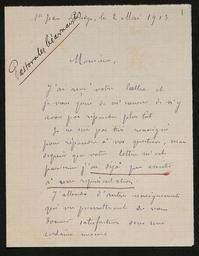 St Jean , le 2 Mai 1913
Pastorales béarnaises
Monsieur,
J'ai reçu votre lettre et
je vous prie de m'excuser de n'y
avoir pas répondu plus tôt
Je ne suis pas très renseigné
pour répondre à vos questions, mais
depuis que votre lettre m'est
parvenue j'ai déjà pu assister
à une représentation
J'attends d'autres renseignements
qui me permettront de vous
donner satisfaction dans une
certaine mesure